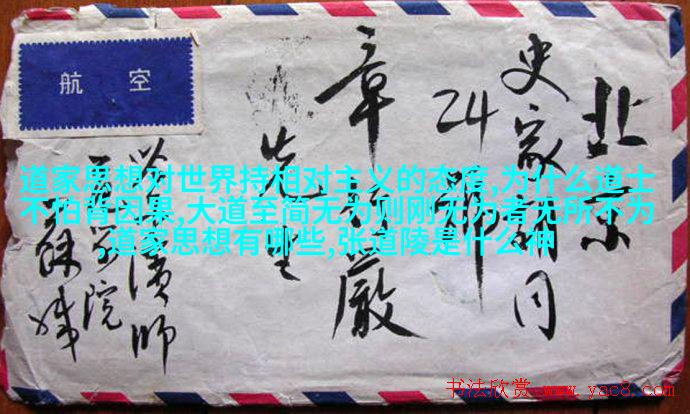 航空
北京
史家胡同
24
章行嚴
先生
道家思想对世界持相对主义的态度,为什么道士
不怕背因果,大道至简无为则刚无为者无所不为
,道家思想有哪些,张道陵是什么神
书法欣赏 www.yac8.com